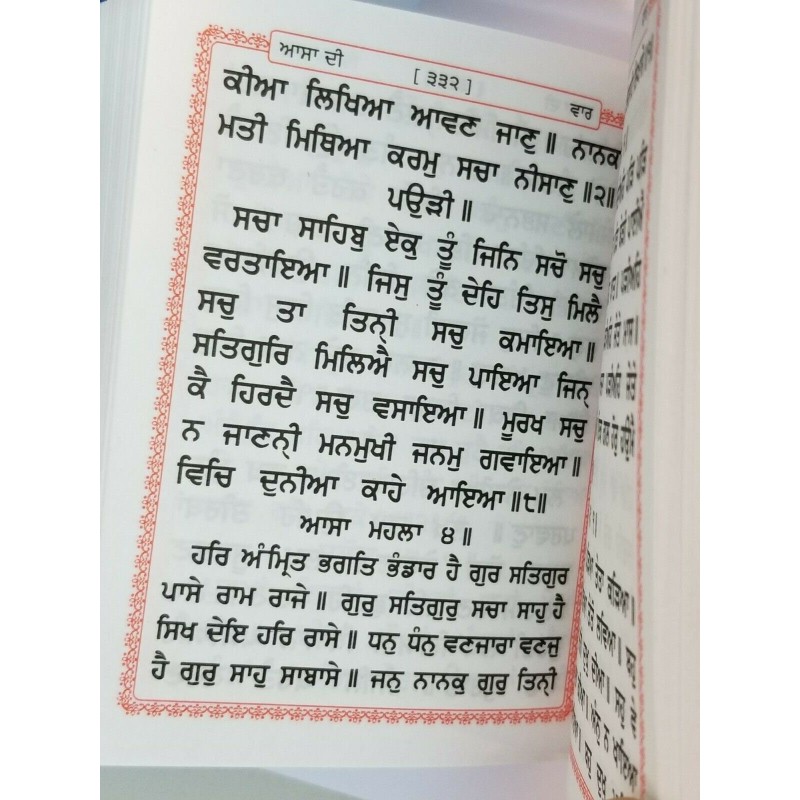 ਆਸਾ ਦੀ [ ੩੩੨ ] ਵਾਰ
ਕੀਆ ਲਿਖਿਆ ਆਵਣ ਜਾਣੁ ॥ ਨਾਨਕ
ਮਤੀ ਮਿਥਿਆ ਕਰਮੁ ਸਚਾ ਨੀਸਾਣੁ ॥੨॥
ਪਉੜੀ ॥
ਸਚਾ ਸਾਹਿਬੁ ਏਕੁ ਤੂੰ ਜਿਨਿ ਸਚੋ ਸਚੁ
ਵਰਤਾਇਆ ॥ ਜਿਸੁ ਤੂੰ ਦੇਹਿ ਤਿਸੁ ਮਿਲੈ
ਸਚੁ ਤਾ ਤਿਨੀ੍ ਸਚੁ ਕਮਾਇਆ ॥
ਸਤਿਗੁਰਿ ਮਿਲਿਐ ਸਚੁ ਪਾਇਆ ਜਿਨ੍
ਕੈ ਹਿਰਦੈ ਸਚੁ ਵਸਾਇਆ ॥ ਮੂਰਖ ਸਚੁ
ਨ ਜਾਣਨੀ੍ ਮਨਮੁਖੀ ਜਨਮੁ ਗਵਾਇਆ ॥
ਵਿਚਿ ਦੁਨੀਆ ਕਾਹੇ ਆਇਆ ॥੮॥
ਆਸਾ ਮਹਲਾ ੪ ॥
ਹਰਿ ਅੰਮ੍ਰਿਤ ਭਗਤਿ ਭੰਡਾਰ ਹੈ ਗੁਰ ਸਤਿਗੁਰ
ਪਾਸੇ ਰਾਮ ਰਾਜੇ ॥ ਗੁਰੁ ਸਤਿਗੁਰੁ ਸਚਾ ਸਾਹੁ ਹੈ
ਸਿਖ ਦੇਇ ਹਰਿ ਰਾਸੇ ॥ ਧਨੁ ਧੰਨੁ ਵਣਜਾਰਾ ਵਣਜੁ
ਹੈ ਗੁਰੁ ਸਾਹੁ ਸਾਬਾਸੇ ॥ ਜਨੁ ਨਾਨਕੁ ਗੁਰੁ ਤਿਨੀ੍